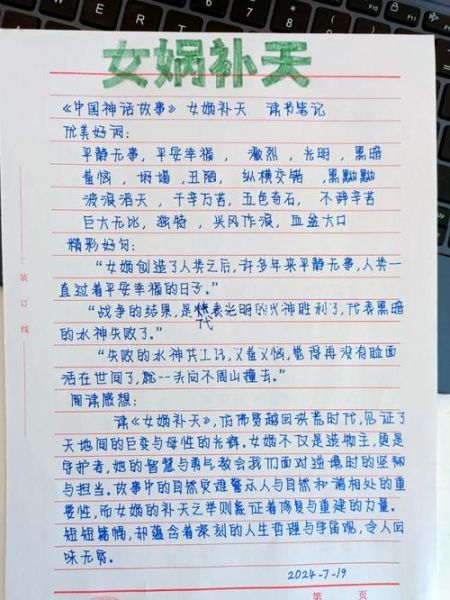 女娲补天
《中国神话故事》女娲补天 读书笔记
优美好词：
平静无事，平安幸福，激烈，光明，黑暗
羞恼，坍塌，丑陋，纵横交错，黑黝黝
波浪滔天，千辛万苦，五色奇石，不辞辛苦
巨大无比，独特，兴风作浪，血盆大口
精彩好句：
“女娲创造了人类之后，许多年来平静无事，人类一
直过着平安幸福的日子。”
“战争的结果，是代表光明的火神胜利了，代表黑暗
的水神失败了。”
“失败的水神共工氏，又羞又恼，觉得再没有脸面
活在世间了，就一头向不周山撞去。”
阅读感想：
读《女娲补天》，仿佛穿越回洪荒时代，见证了
天地间的巨变与母性的光辉。女娲不仅是造物主，更是
守护者，她的智慧与勇气教会我们面对逆境时的坚韧
与担当。故事中的自然灾难警示人与自然和谐相处的重
要性，而女娲的补天之举则象征着修复与重建的力量。
短短篇幅，却蕴含着深刻的人生哲理与宇宙观，令人回
味无穷。
2024-7-19
装订线
第 页